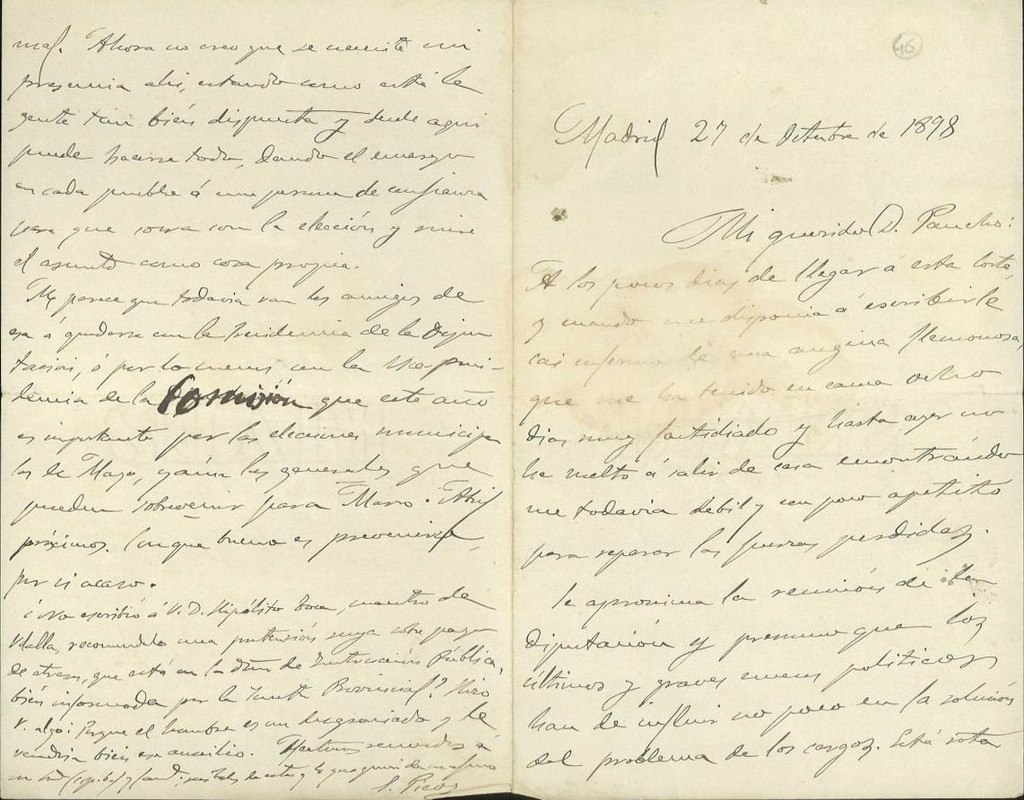 46
Madrid 27 de Octubre de 1898
Mi querido D. Pancho:
A los pocos dias de llegar á esta corte,
y cuando me disponia á escribirle
caí enfermo de una angina flemonosa,
que me ha tenido en cama ocho
dias muy fastidiado y hasta ayer no
he vuelto á salir de casa encontrándo
me todavia debil y con poco apetito
para reparar las fuerzas perdidas.
Se aproxima la reunión de la
Diputación y presumo que los
últimos y graves sucesos politicos
han de influir no poco en la solución
del problema de los cargos. Está rota
mal. Ahora no creo que se necesite mi
presencia ahi, estando como está la
gente tan bién dispuesta y desde aqui
puede hacerse todo, dando el encargo
en cada pueblo á una persona de confianza
para que corra con la elección y mire
el asunto como cosa propia.
Me parece que todavia van los amigos de
esa á quedarse con la Presidencia de la Dipu
tación, ó por lo menos con la Vicepresi-
dencia de la Comisión que este año
es importante por las elecciones municipa
les de Mayo, y aún las generales que
pueden sobrevenir para Marzo ó Abril
próximos. Conque bueno es prevenirse,
por si acaso.
¿No escribió á V. D. Hipólito, maestro de
recomendando una pretensión suya sobre pago
de atrasos, que está en la Dón de Instrucción Pública
bién informada por la Junta Provincial? Hizo
V. algo? Porque el hombre es un desgraciado y le
vendria bien ese auxilio. recuerdos á
y
S.